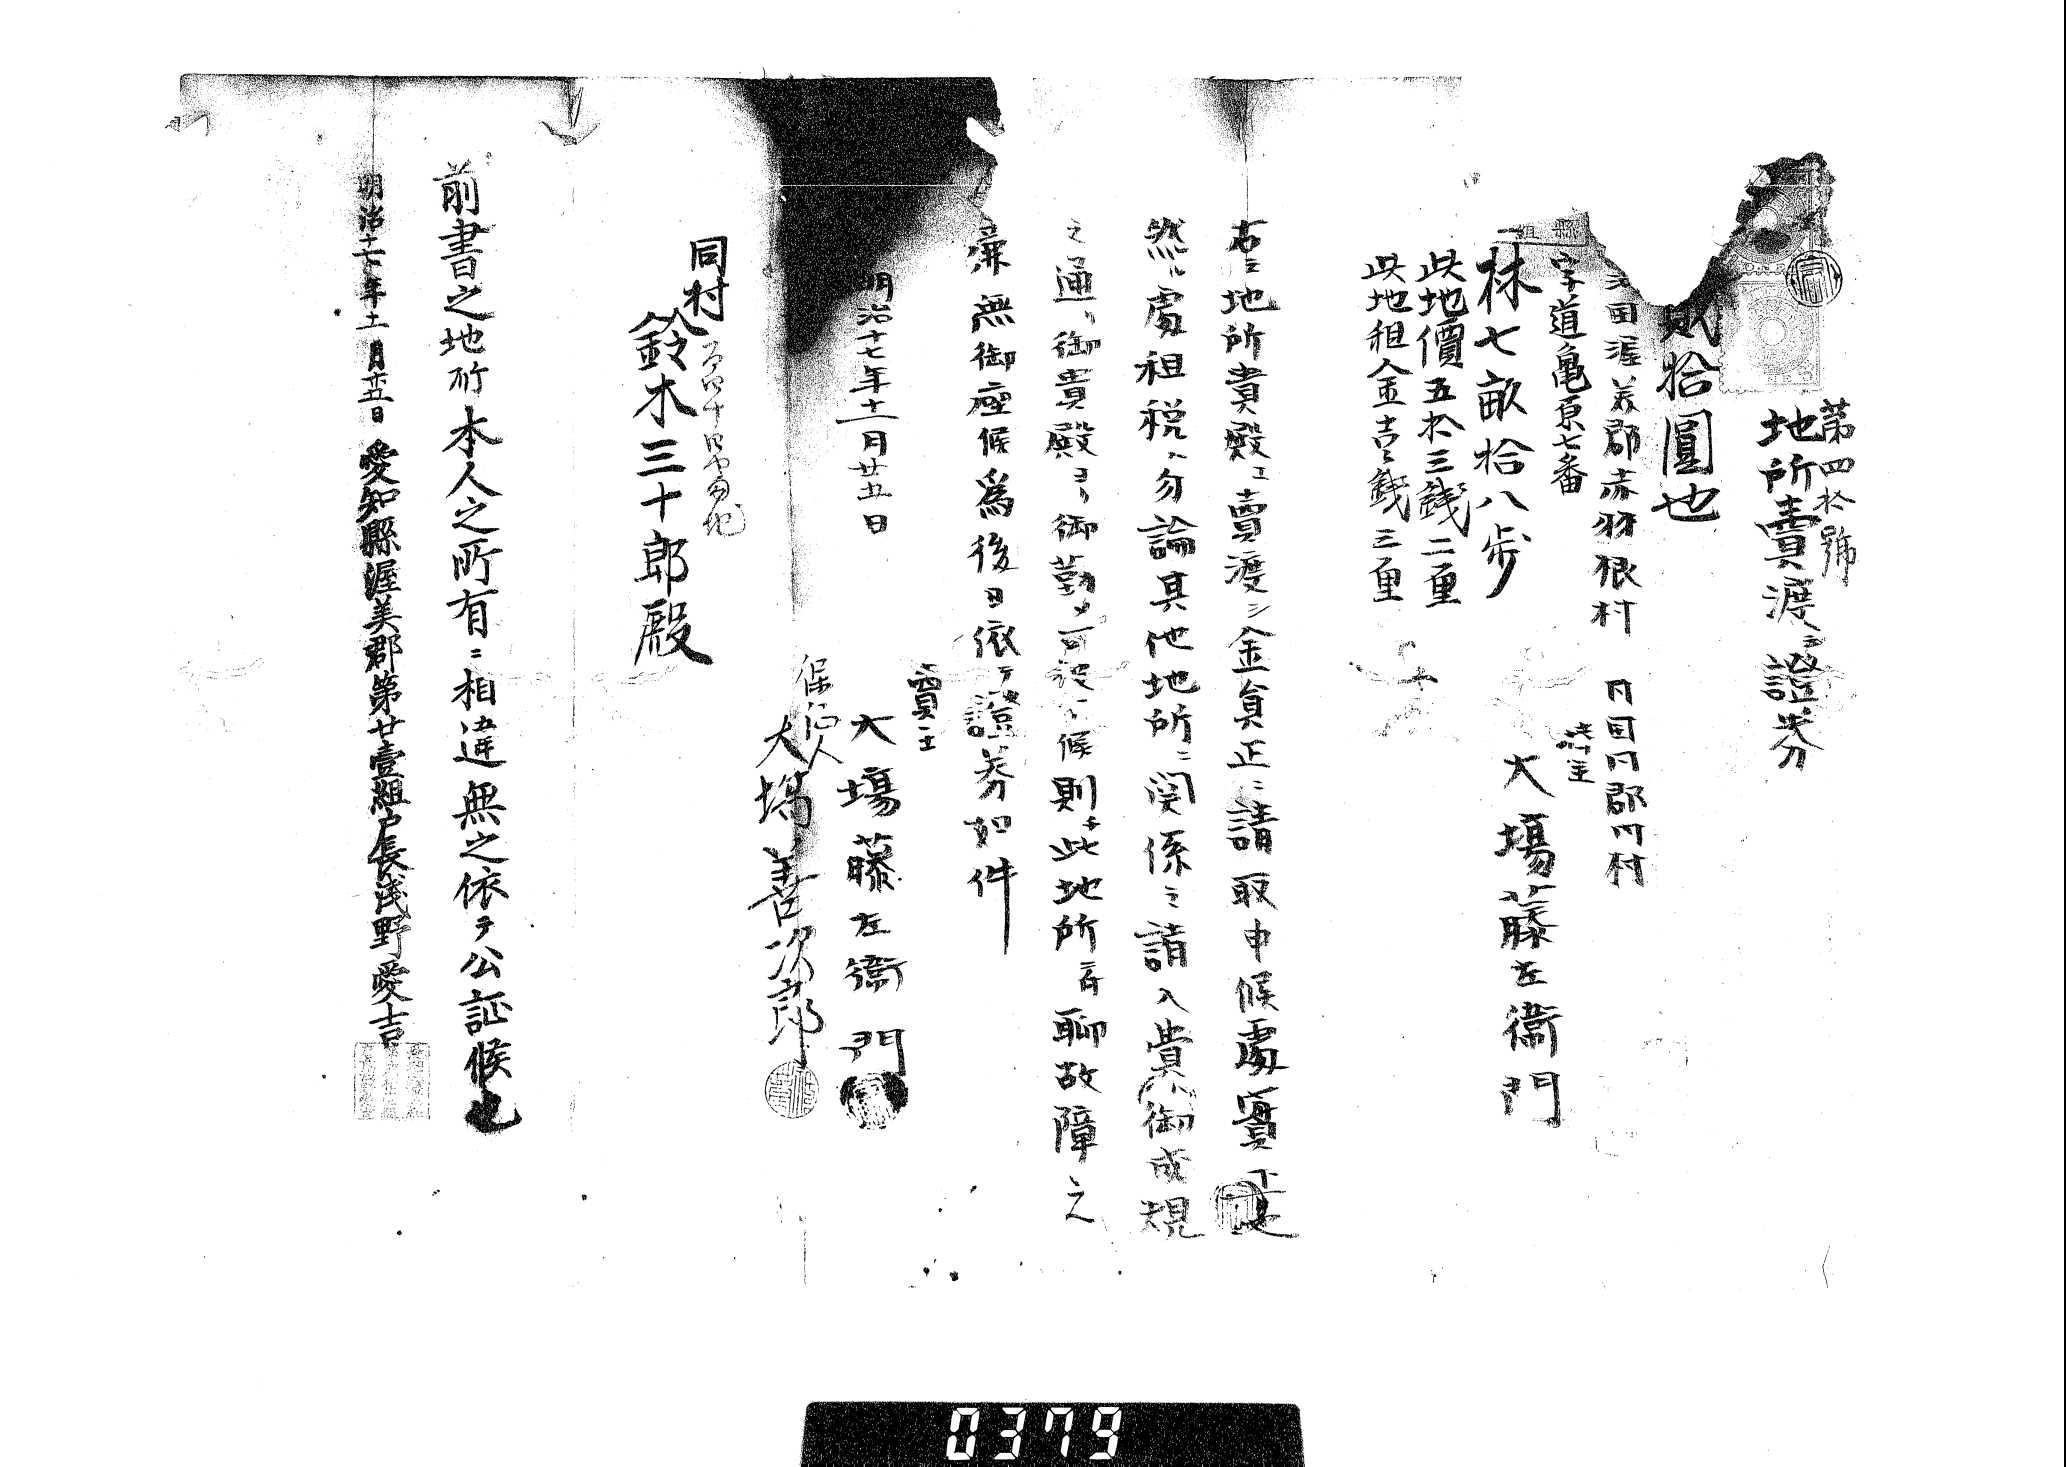 第四拾號
地所賣渡シ證券
貳拾圓也
三河国渥美郡赤羽根村
仝国仝郡仝村
字道亀原七番
持主
大場藤左衛門
一林七畝拾八歩
此地價五拾三錢二厘
此地租金壱錢三厘
右之地所貴殿エ賣渡シ金員正ニ請取申候處實正也
然ル處租税ハ勿論其他地所ニ関係之諸入費ハ御成規
之通リ御貴殿ヨリ御勤メ可被下候則チ此地所ニ付聊故障之
儀無御座候為後日依テ證券如件
明治十七年十一月廿五日
賣主
大場藤左衛門
保証人
大場善次郎
同村
鈴木三十郎殿
前書之地所本人之所有ニ相違無之依テ公証候也
明治十七年十一月廿五日 愛知縣渥美郡第廿壹組戸長浅野愛吉
0379